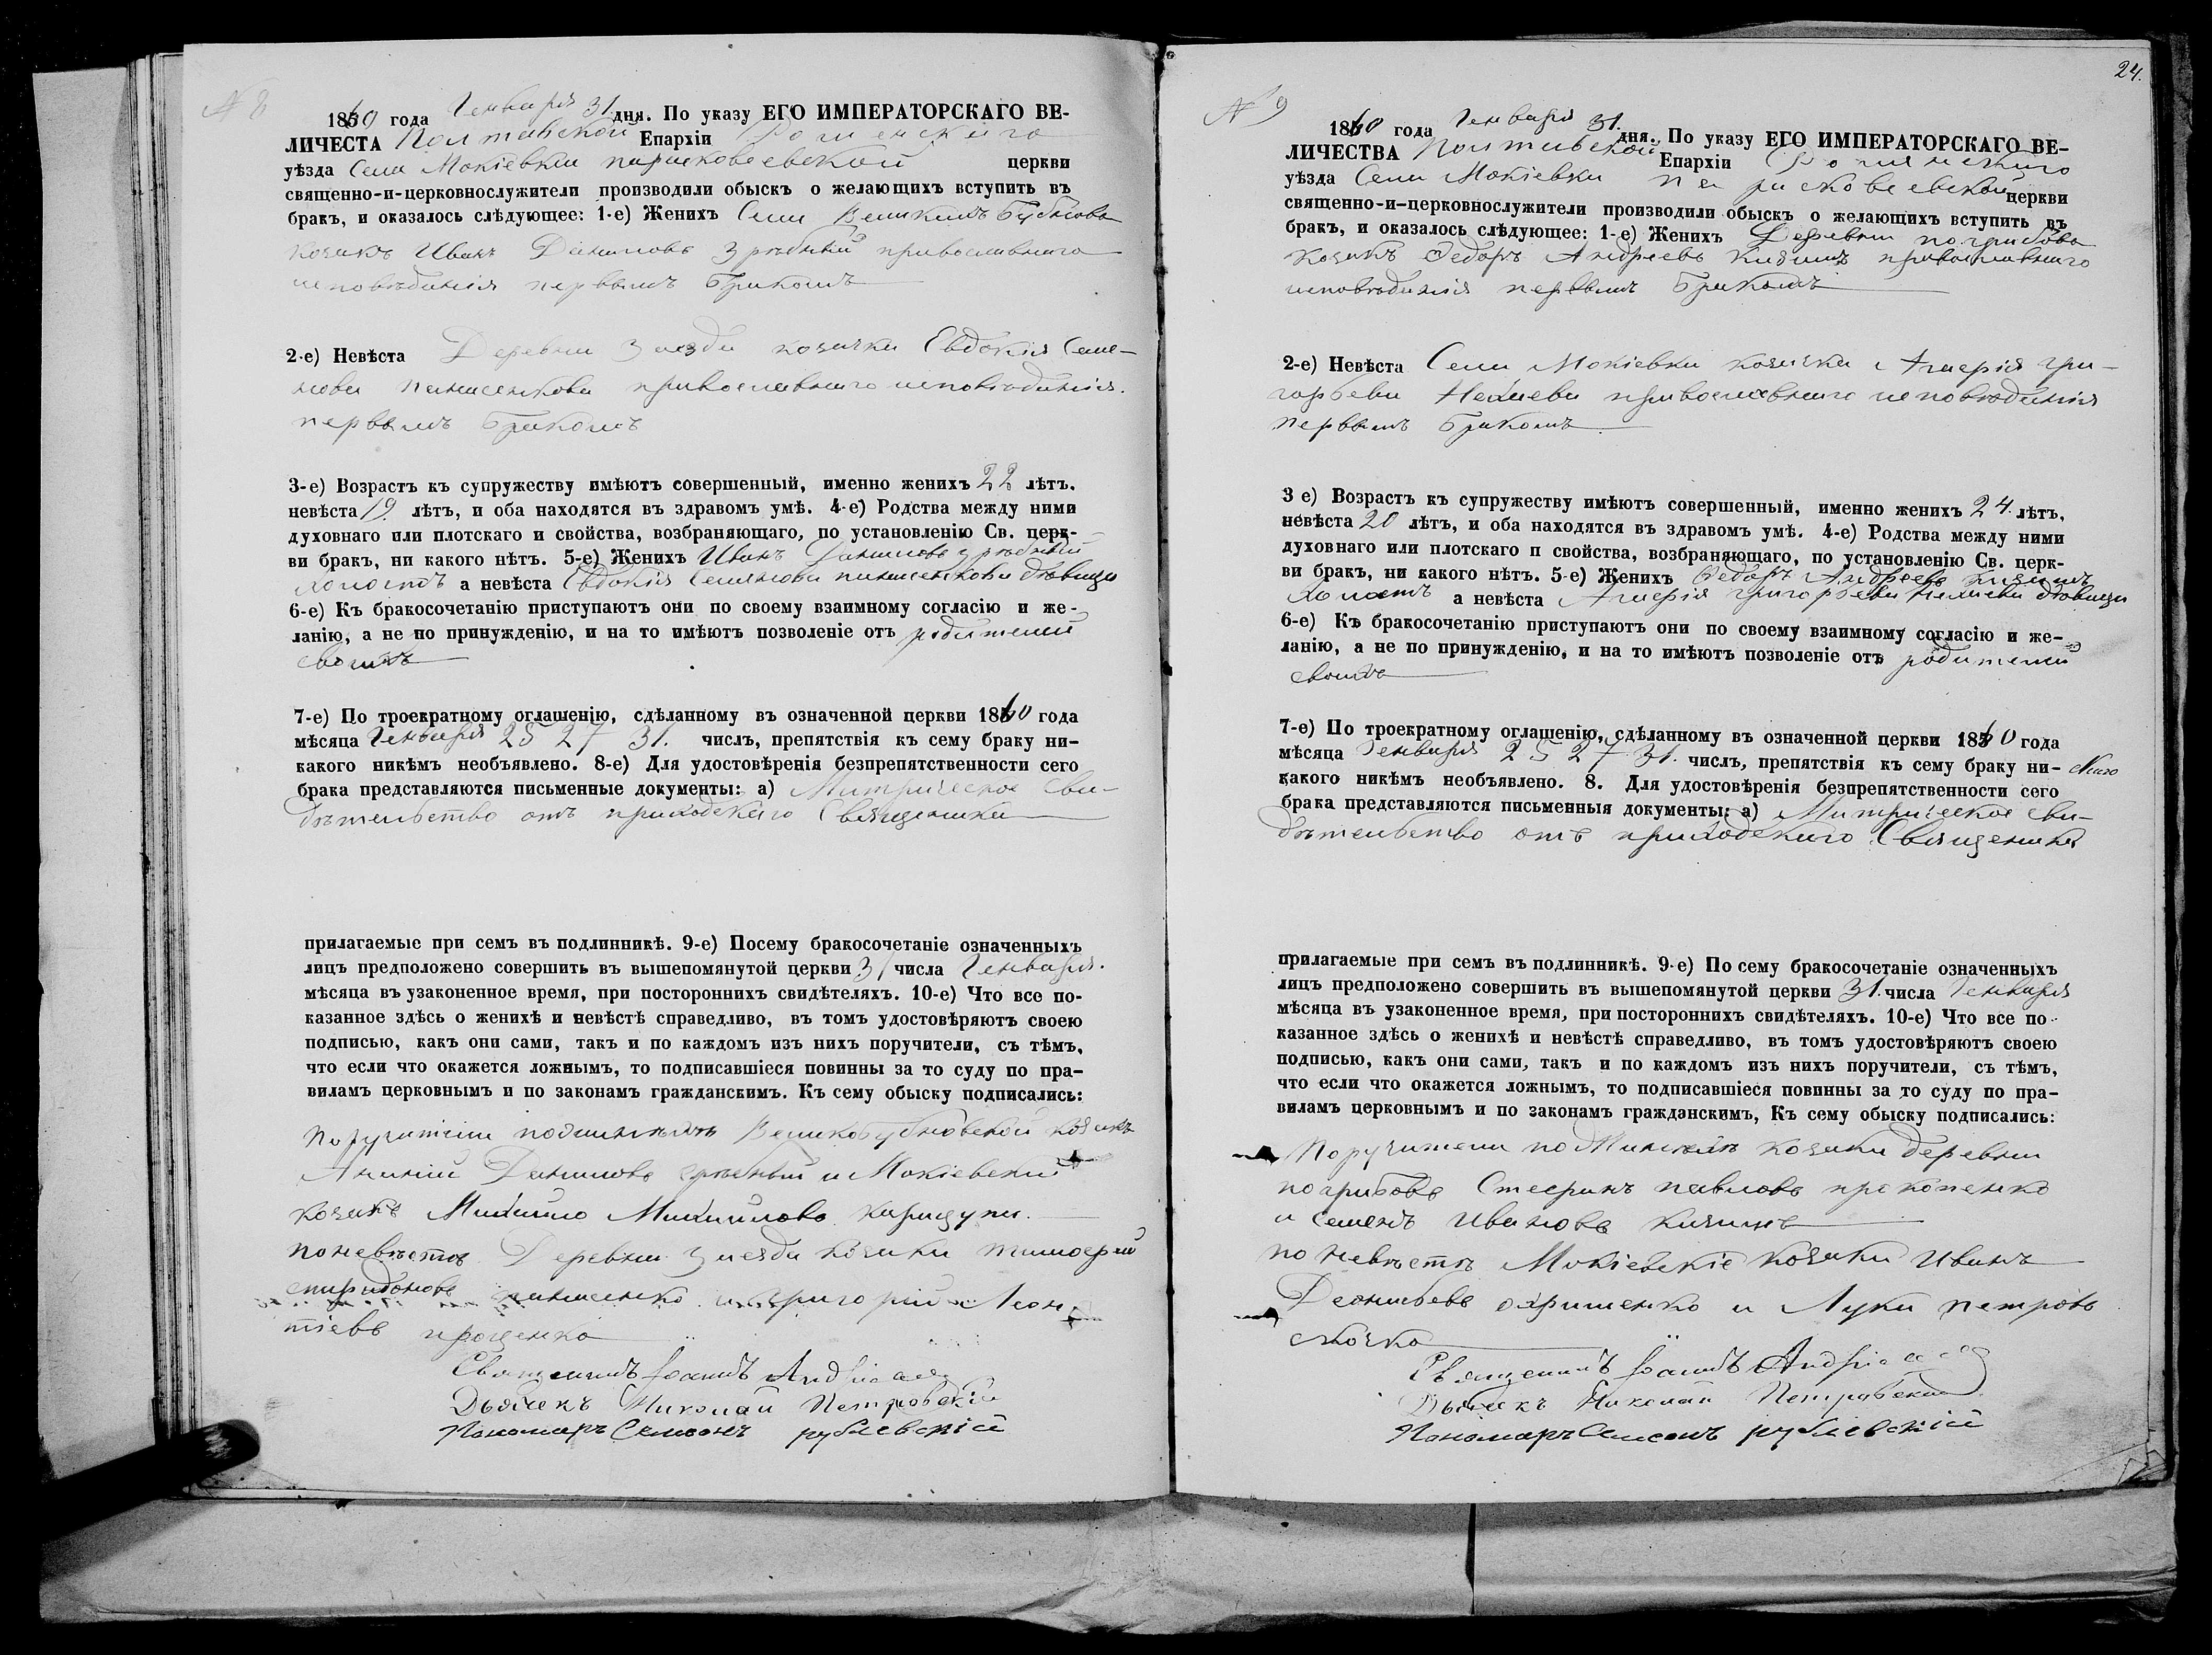 N 8
1860 года Генваря 31 дня. По указу ЕГО ИМПЕРАТОРСКАГО ВЕ-
ЛИЧЕСТА Полтавской Епархіи Роменскаго
уѣзда Села Мокіевки парасковеевской церкви
священно-и-церковнослужители производили обыскъ о желающихъ вступить въ
бракъ, и оказалось слѣдующее: 1-е) Женихъ Села Великихъ Бубновъ
козакъ Иванъ Даниловъ православнаго
исповѣданія первымъ бракомъ
2-е) Невѣста Деревни козачка Евдокія Семе-
нова православнаго исповѣданія.
первымъ бракомъ
3-е) Возрастъ къ супружеству имѣютъ совершенный, именно женихъ 22 лѣтъ.
невѣста 19. лѣтъ, и оба находятся въ здравомъ умѣ. 4-е) Родства между ними
духовнаго или плотскаго и свойства, возбраняющаго, по установленію Св. церк-
ви бракъ, ни какого нѣтъ. 5-е) Женихъ Иванъ Даниловъ
холостъ а невѣста Евдокія Семенова дѣвица
6-е) Къ бракосочетанію приступаютъ они по своему взаимному согласію и же-
ланію, а не по принужденію, и на то имѣютъ позволеніе отъ родителей
своихъ
7-е) По троекратному оглашенію, сдѣланному въ означенной церкви 1860 года
мѣсяца Генваря 25 27 31. числъ, препятствія къ сему браку ни-
какого никѣмъ необъявлено. 8-е) Для удостовѣренія безпрепятственности сего
брака представляются письменные документы: а) Митрическое сви-
дѣтельство отъ приходскаго Священика
прилагаемые при семъ въ подлинникѣ. 9-е) Посему бракосочетаніе означенныхъ
лицъ предположено совершить въ вышепомянутой церкви 31 числа Генваря.
мѣсяца въ узаконенное время, при постороннихъ свидѣтеляхъ. 10-е) Что все по-
казанное здѣсь о женихѣ и невѣстѣ справедливо, въ томъ удостовѣряютъ своею
подписью, какъ они сами, такъ и по каждомъ изъ нихъ поручители, съ тѣмъ,
что если что окажется ложнымъ, то подписавшіеся повинны за то суду по пра-
виламъ церковнымъ и по законамъ гражданскимъ. Къ сему обыску подписались:
Поручители Великобубновской козакъ
Ананій Даниловъ и Мокіевскій
козакъ Михайло Михайловъ
по невѣсте Деревни козаки тимофей
спиридоновъ и григорій Леон
тіевъ проценко
Священникъ Іоаннъ
Дьячекъ Николай Петровскій
Пономаръ Симеонъ рублевскій
24.
N 9
1860 года Генваря 31. дня. По указу ЕГО ИМПЕРАТОРСКАГО ВЕ-
ЛИЧЕСТВА Полтавской Епархіи Роменскаго
уѣзда Села Мокіевки парасковеевской церкви
священно-и-церковнослужители производили обыскъ о желающихъ вступить въ
бракъ, и оказалось слѣдующее: 1-е) Женихъ Деревни погрибовъ
козакъ Федоръ Андреевъ православнаго
исповѣданія первымъ бракомъ
2-е) Невѣста Села Мокіевки козачка Агафія гри-
горьева православнаго исповѣданія
первымъ бракомъ
3 е) Возрастъ къ супружеству имѣютъ совершенный, именно женихъ 24. лѣтъ,
невѣста 20 лѣтъ, и оба находятся въ здравомъ умѣ. 4-е) Родства между ними
духовнаго или плотскаго п свойства, возбраняющаго, по установленію Св. церк-
ви бракъ, ни какого нѣтъ. 5-е) Женихъ Федоръ Андреевъ
холостъ а невѣста Агафія григорьева дѣвица
6-е) Къ бракосочетанію приступаютъ они по своему взаимному согласію и же-
ланію, а не по принужденію, и на то имѣютъ позволеніе отъ родителей
своихъ
7-е) По троекратному оглашенію, сдѣланному въ означенной церкви 1860 года
мѣсяца Генваря 25 27 31. числъ, препятствія къ сему браку ни-
какого никѣмъ необъявлено. 8. Для удостовѣренія безпрепятственности сего
брака представляются письменныя документы: а) Митрическое сви-
дѣтельство отъ приходскаго Священика
прилагаемые при семъ въ подлинникѣ. 9-е) По сему бракосочетаніе означенныхъ
лицъ предположено совершить въ вышепомянутой церкви 31. числа Генваря
мѣсяца въ узаконенное время, при постороннихъ свидѣтеляхъ. 10-е) Что все по-
казанное здѣсь о женихѣ и невѣстѣ справедливо, въ томъ удостовѣряютъ своею
подписью, какъ они сами, такъ и по каждомъ изъ нихъ поручители, съ тѣмъ,
что если что окажется ложнымъ, то подписавшіеся повинны за то суду по пра-
виламъ церковнымъ и по законамъ гражданскимъ, Къ сему обыску подписались:
Поручители козаки деревни
погрибовъ Стефанъ павловъ прокопенко
и Семенъ Ивановъ
по невѣстѣ Мокіевскіе козаки Иванъ
Леонтьевъ и Лука петровъ
Священникъ Іоаннъ
Дьячекъ Николай Петровскій
Пономаръ Симеонъ рублевскій